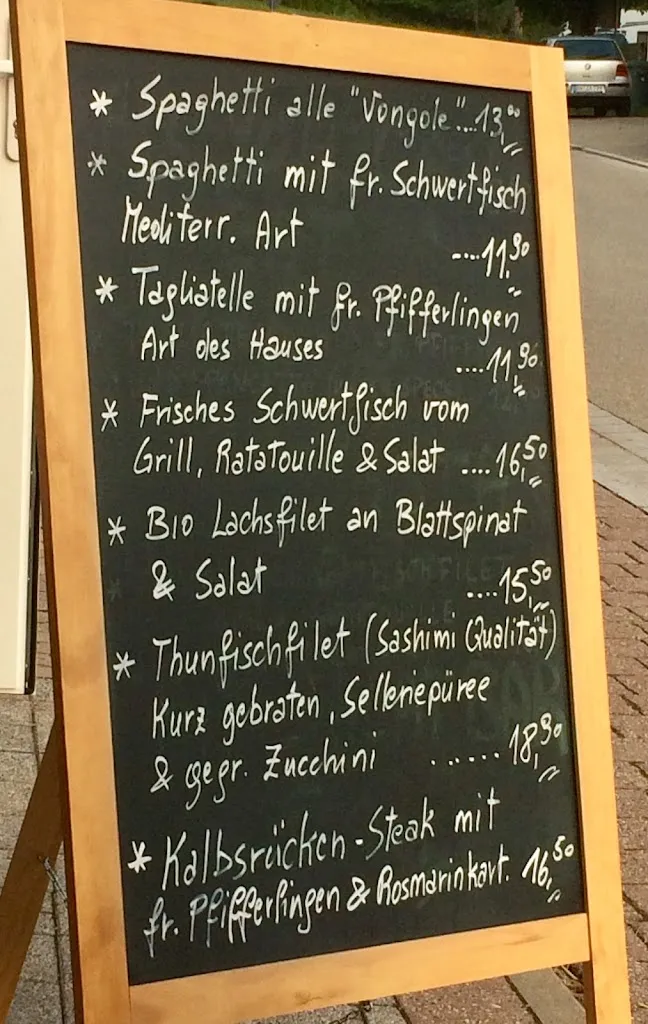 * Spaghetti alle "Vongole"...13,00
* Spaghetti mit fr. Schwertfisch
Mediterr. Art
....11,90
* Tagliatelle mit fr. Pfifferlingen
Art des Hauses ....11,90
* Frisches Schwertfisch vom
Grill, Ratatouille & Salat ....16,50
* Bio Lachsfilet an Blattspinat
& Salat ....15,50
* Thunfischfilet (Sashimi Qualität)
Kurz gebraten, Selleriepüree
& gegr. Zucchini ......18,90
* Kalbsrücken-Steak mit
fr. Pfifferlingen & Rosmarinkart. 16,50